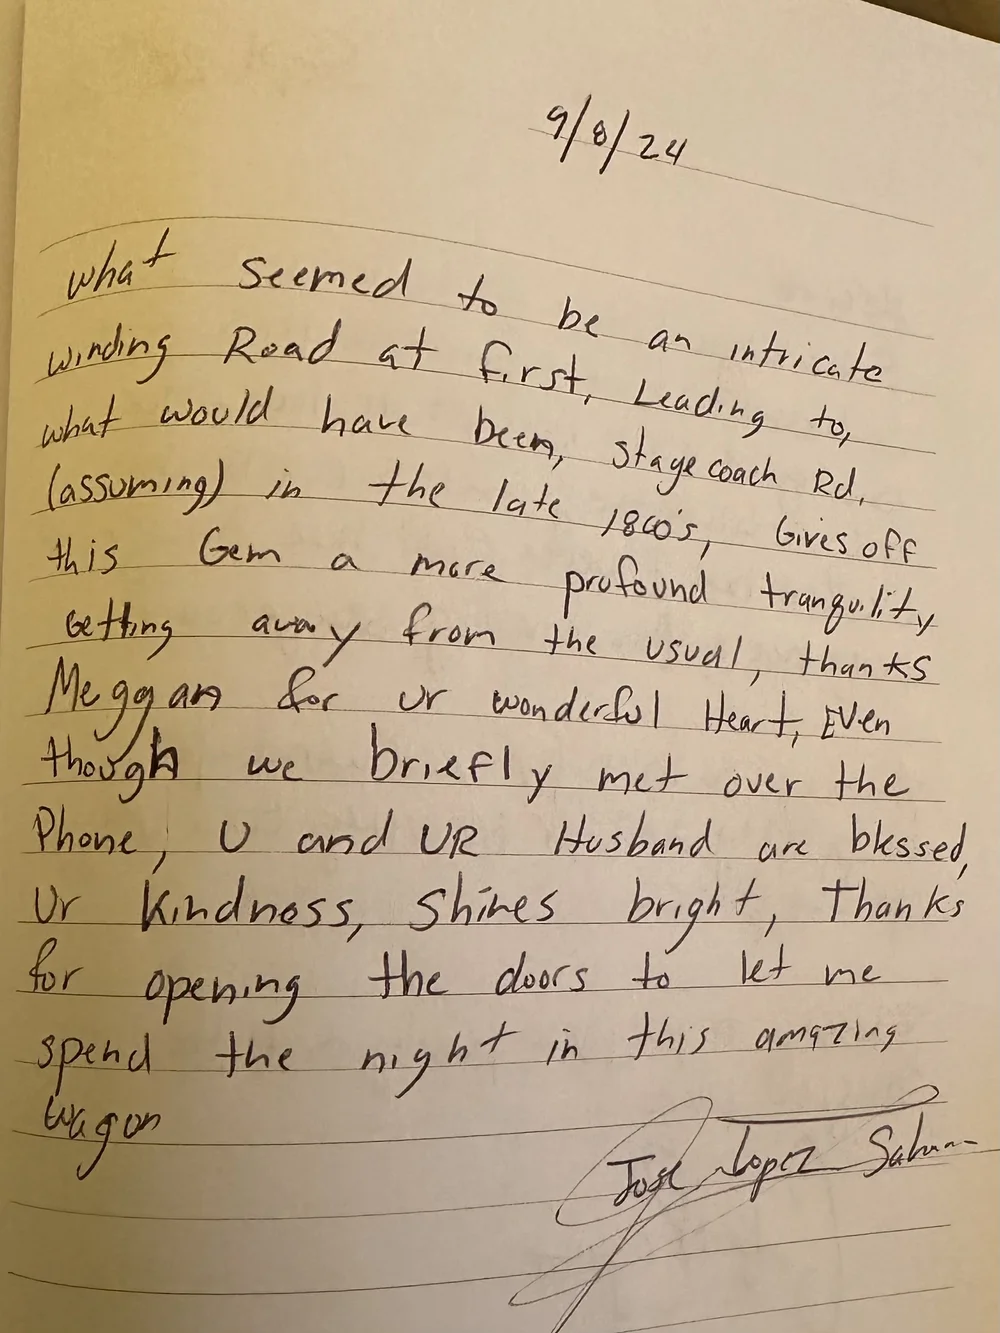 9/8/24
what seemed to be an intricate
winding Road at first, Leading to,
what would have been, stage coach Rd,
(assuming) in the late 1800's, Gives off
this Gem a more profound tranquility
Getting away from the usual, thanks
Meggan for ur wonderful Heart, EVen
though we briefly met over the
Phone, U and UR Husband are blessed,
Ur Kindness, Shines bright, Thanks
for opening the doors to let me
spend the night in this amazing
wagon
Jose Lopez